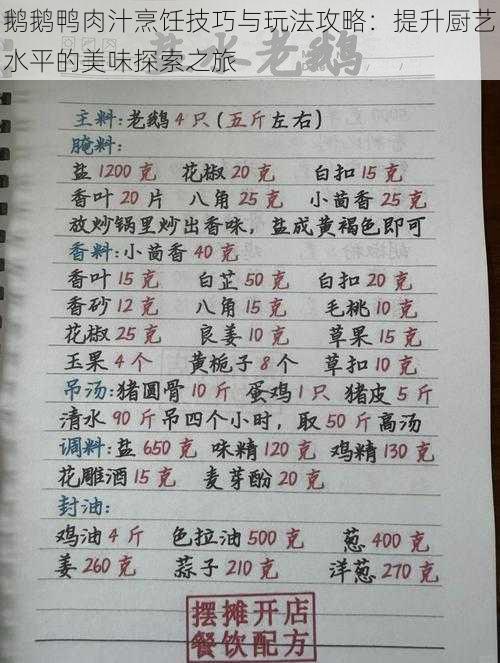 鹅鹅鸭肉汁烹饪技巧与玩法攻略：提升厨艺
水平的美味探索之旅
水老鹅
主料:老鹅4只(五斤左右)
腌料:
盐1200克 花椒20克 白扣15克
香叶20片 八角25克 小茴香25克
放炒锅里炒出香味，盐成黄褐色即可
香料:小茴香40克
香叶15克 白芷50克 白扣20克
香砂12克 八角15克 毛桃10克
花椒25克 良姜10克 草果15克
玉果4个 黄栀子8个 草扣10克
吊汤:猪圆骨10斤 蛋鸡1只 猪皮5斤
清水90斤吊四个小时，取50斤高汤
调料:盐650克 味精120克 鸡精130克
花雕酒15克 麦芽酚20克
封油:
鸡油4斤 色拉油500克 葱400克
姜260克 蒜子210克 洋葱270克
摆摊开店
餐饮配方